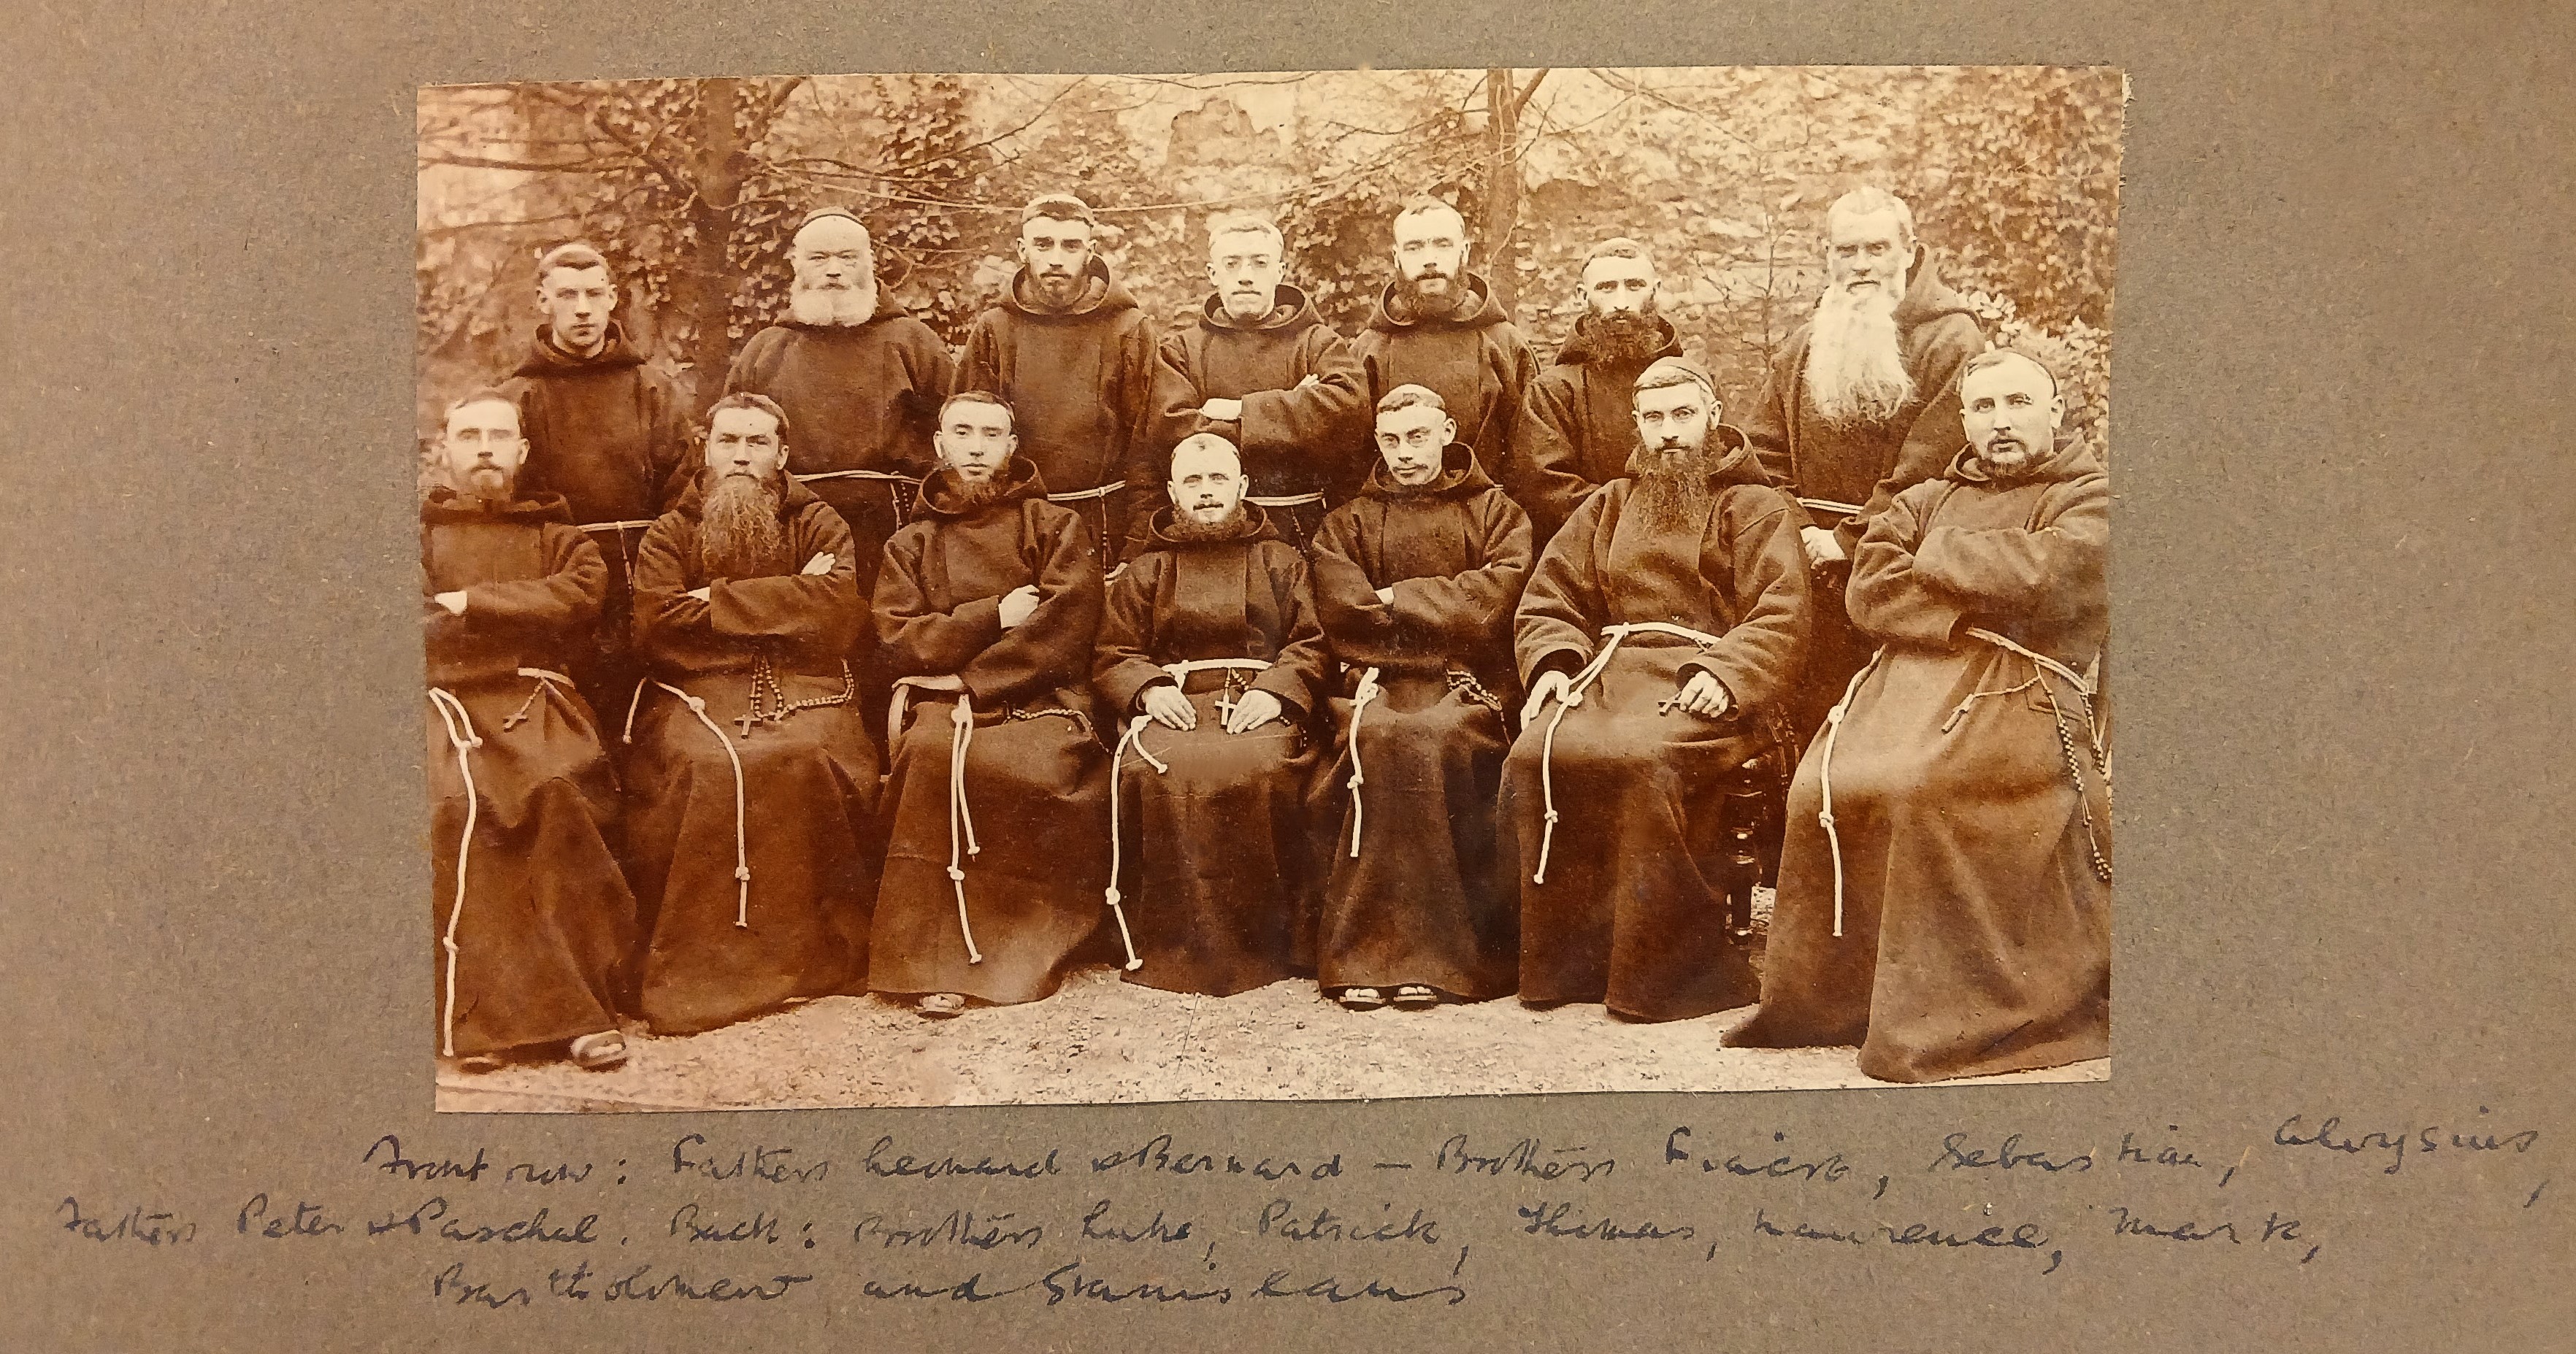 Front row: Fathers Leonard & Bernard – Brothers Fiacre, Sebastian, Aloysius,
Fathers Peter & Paschal. Back: Brothers Luke, Patrick, Thomas, Lawrence, Mark,
Bartholomew and Stanislaus